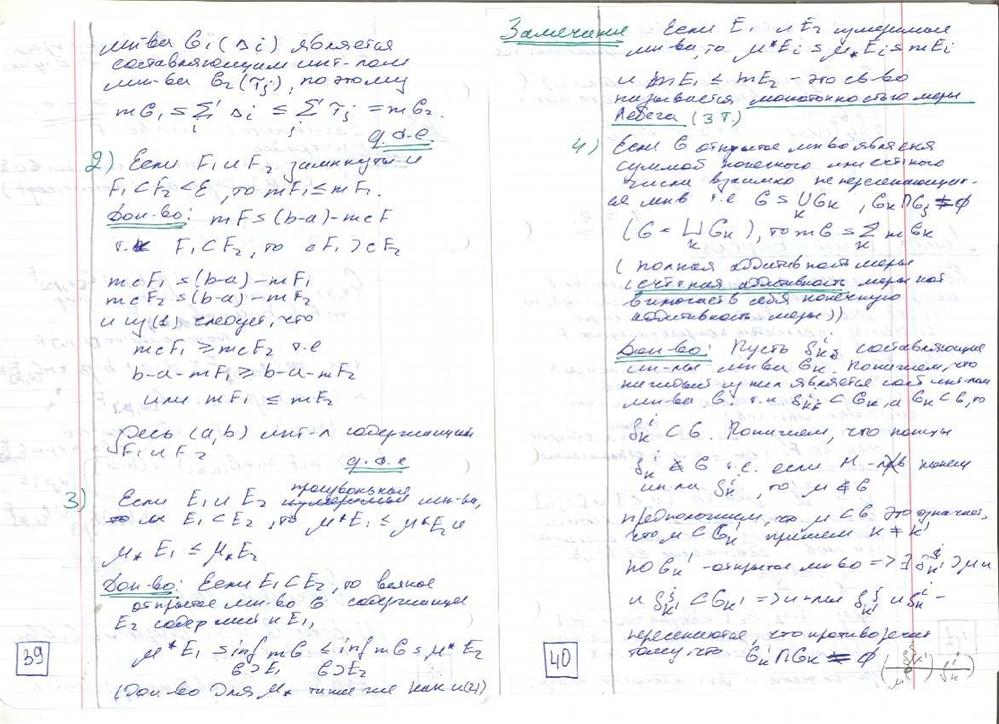 мн-ва G₁ (Δi) является
составляющим инт-лом
мн-ва G₂ (Tj), поэтому
mG₁ = Σ Δi ≤ Σ Tj = mG₂.
i j
ч.т.д.
2) Если F₁ и F₂ замкнуты и
F₁ ⊂ F₂ < E, то mF₁ ≤ mF₁.
Док-во: mF = (b-a) - mcF
т.к F₁ ⊂ F₂, то cF₁ ⊃ cF₂
mcF₁ = (b-a) - mF₁
mcF₂ = (b-a) - mF₂
и из (1) следует, что
mcF₁ ≥ mcF₂ т.е
b-a-mF₁ ≥ b-a-mF₂
или mF₁ ≤ mF₂
Здесь (a,b) инт-л содержащий
F₁ и F₂
ч.т.д
3) Если E₁ и E₂ произвольная мн-ва,
E₁ ⊂ E₂, то μ*E₁ ≤ μ*E₂ и
μ* E₁ ≤ μ* E₂
Док-во: Если E₁ ⊂ E₂, то всякое
открытое мн-во G содержащее
E₂ содержит и E₁,
μ* E₁ = inf mG ≤ inf mG = μ* E₂
G⊃E₁ G⊃E₂
(Док-во для μ* такое же как и (2))
39
Замечание Если E₁ и E₂ измеримые
мн-ва, то, μ*Ei = μ*Ei = mEi
и mE₁ ≤ mE₂ - это св-во
называется монотонностью меры
Лебега (3 т.)
4) Если G открытое мн-во является
суммой конечного или счетного
числа взаимно не пересекающих-
ся мн-в т.е G = ∪Gk, Gk∩Gj = ∅
k
(G = ⊔ Gk), то mG = Σ mGk
k k
(полная аддитивность меры
(счетная аддитивность меры
включает в себя конечную
аддитивность меры))
Док-во: Пусть δk^i составляющие
ин-лы мн-ва Gk. Покажем, что
каждый из них является сост инт-лом
мн-ва G. т.к δk^i ⊂ Gk, а Gk ⊂ G, то
δk^i ⊂ G. Покажем, что концы
δk^i ∉ G т.е. если μ - конец
ин-ла δk^i, то μ ∉ G
предположим, что μ ⊂ G это означает,
что μ ⊂ Gk' причем k ≠ k'
но Gk' - открытое мн-во => ∃ δk'^j ∋ μ и
и δk'^j ⊂ Gk' => и-лы δk'^j и δk^i -
пересекаются что противоречит
тому, что Gk' ∩ Gk = ∅
40